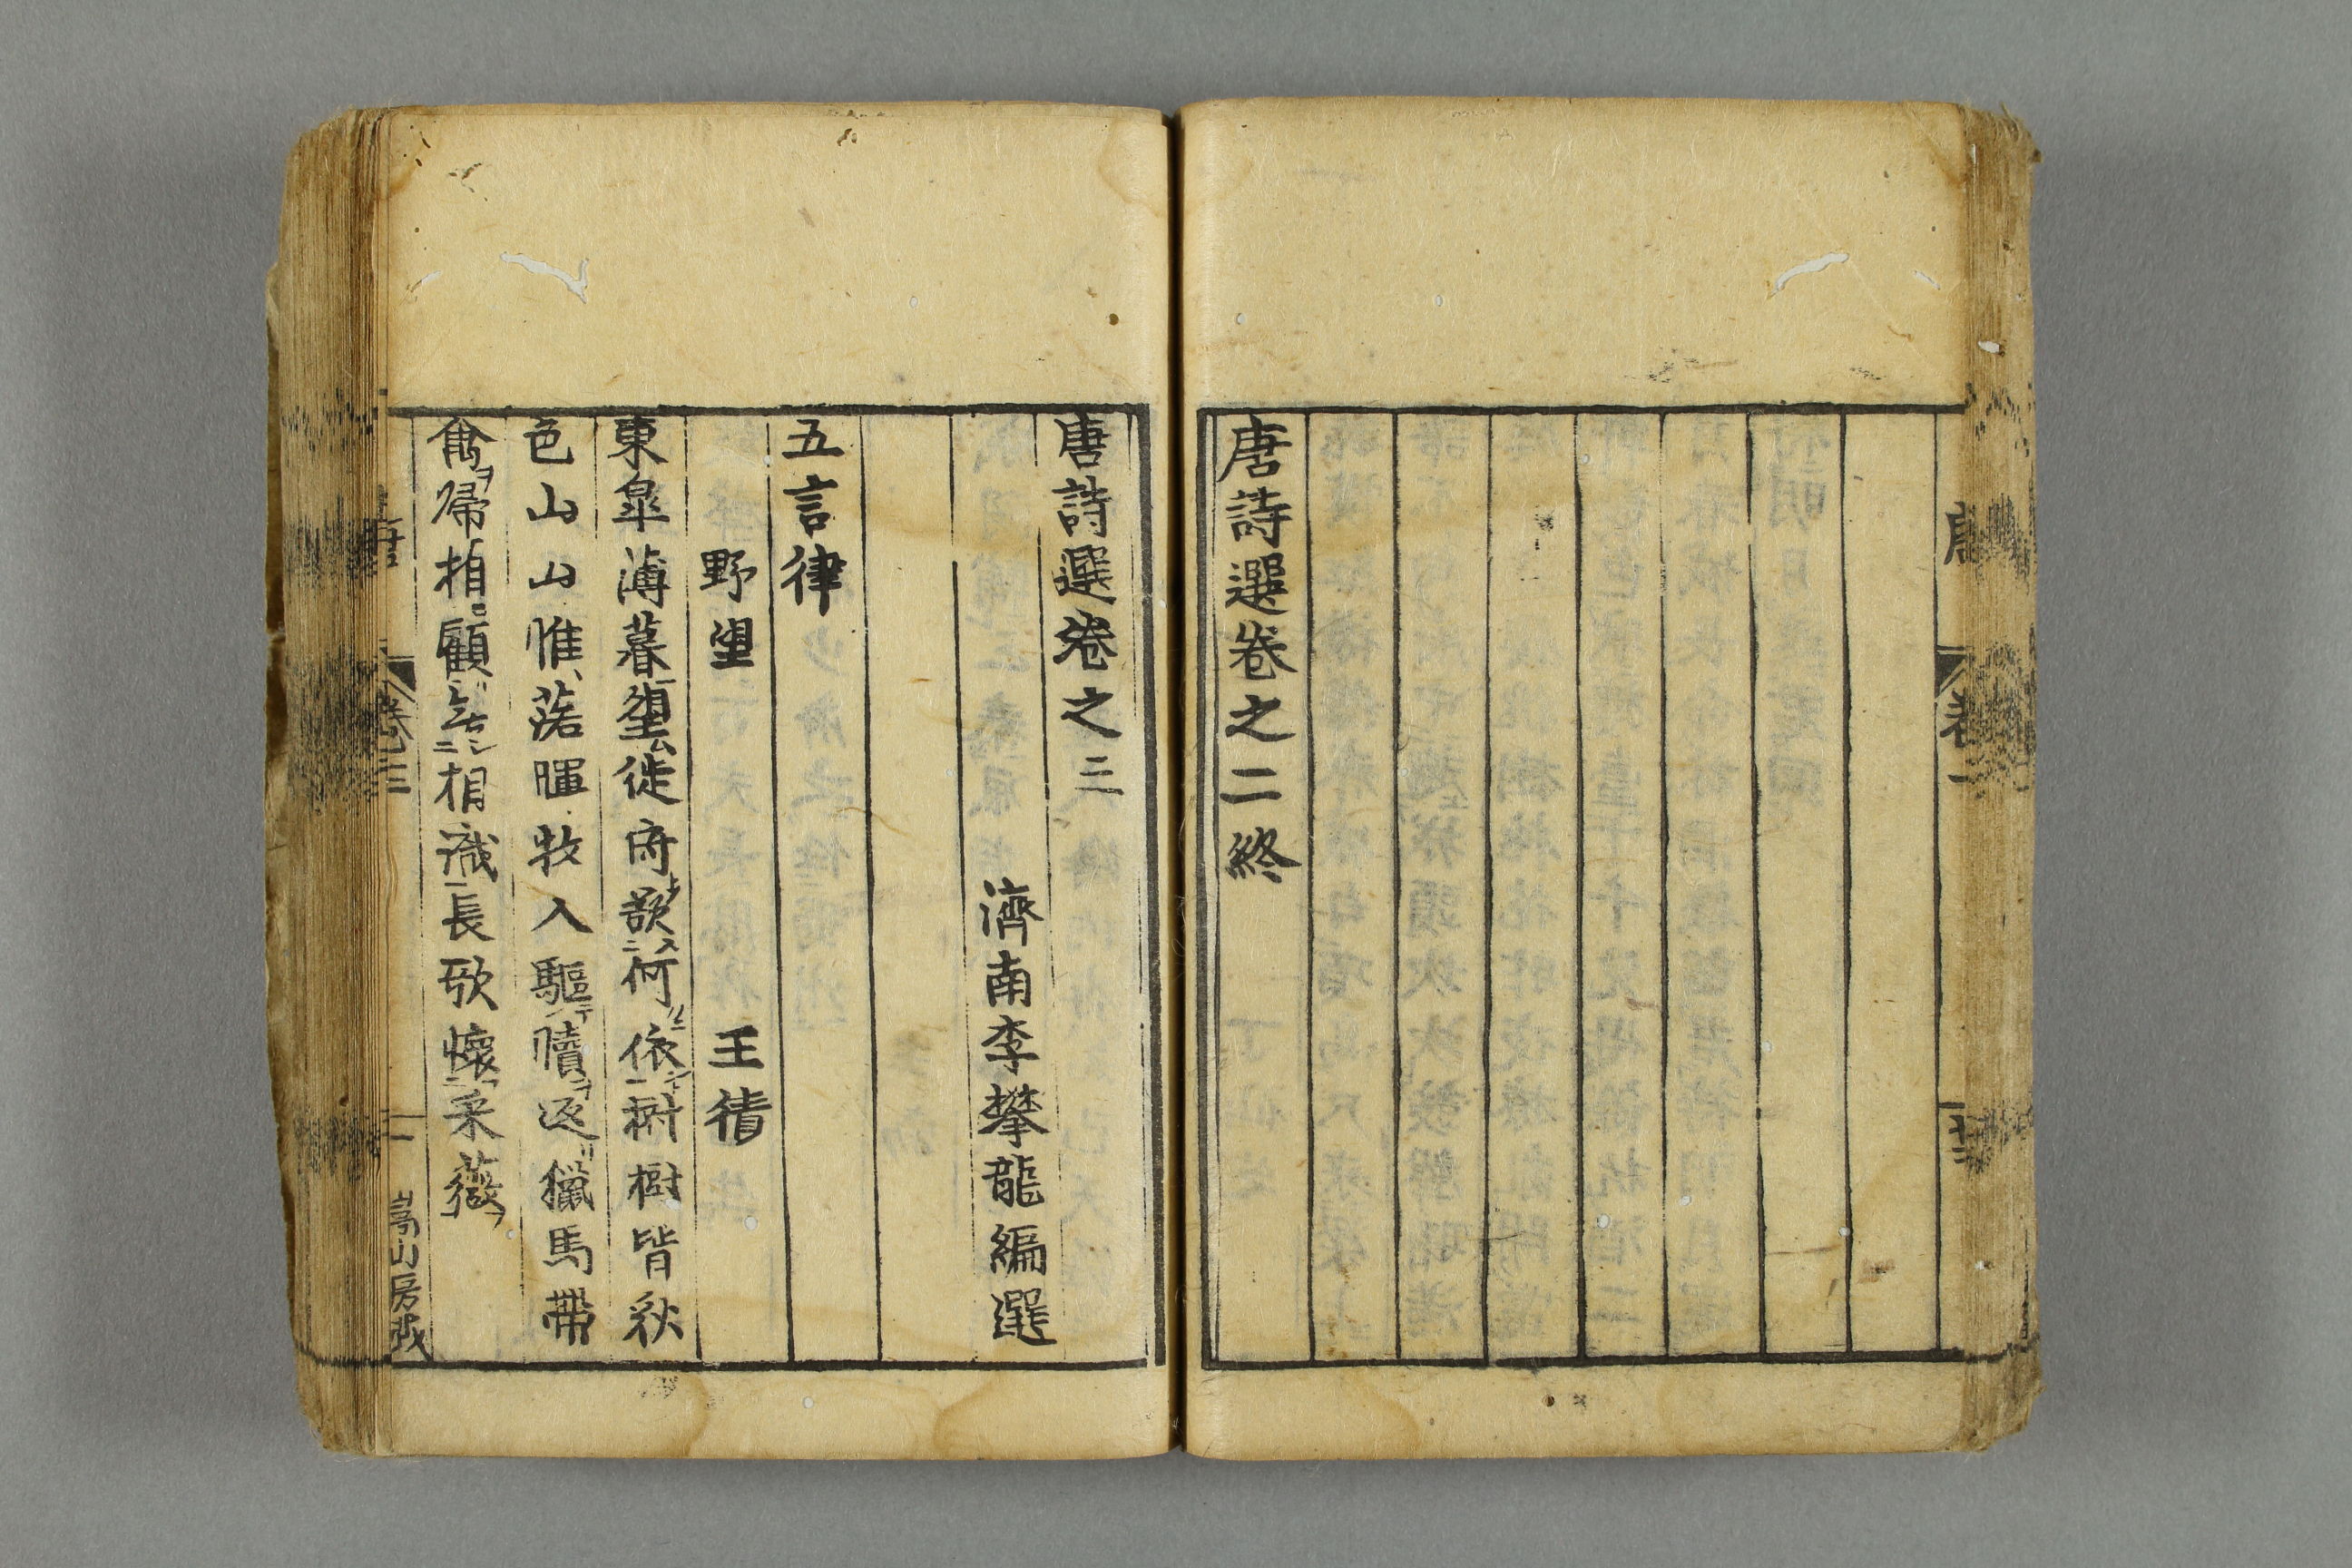 唐詩選卷之二終
唐詩選卷之三
濟南李攀龍編選
五言律
野望 王績
東皐薄暮望徙倚欲何依樹樹皆秋
色山山惟落暉牧人驅犢返獵馬帶
禽歸相顧無相識長歌懷采薇
卷三 一 嵩山房藏